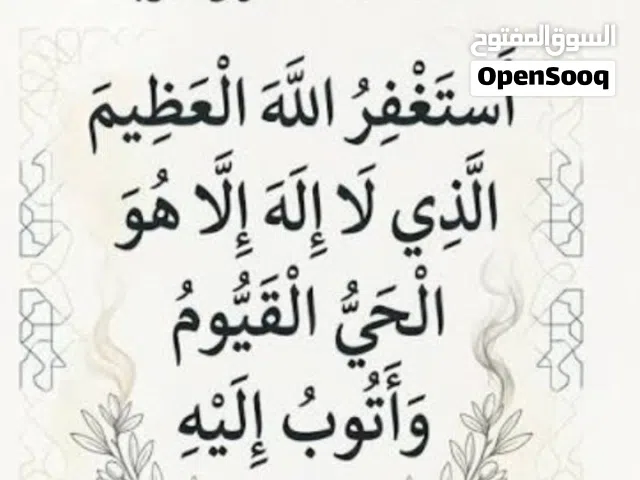 السوق المفتوح
OpenSooq
أَستَغْفِرُ اللَّهَ الْعَظِيمَ
الَّذِي لَا إِلَهَ إِلَّا هُوَ
الْحَيُّ الْقَيُّومُ
وَأَتُوبُ إِلَيْهِ